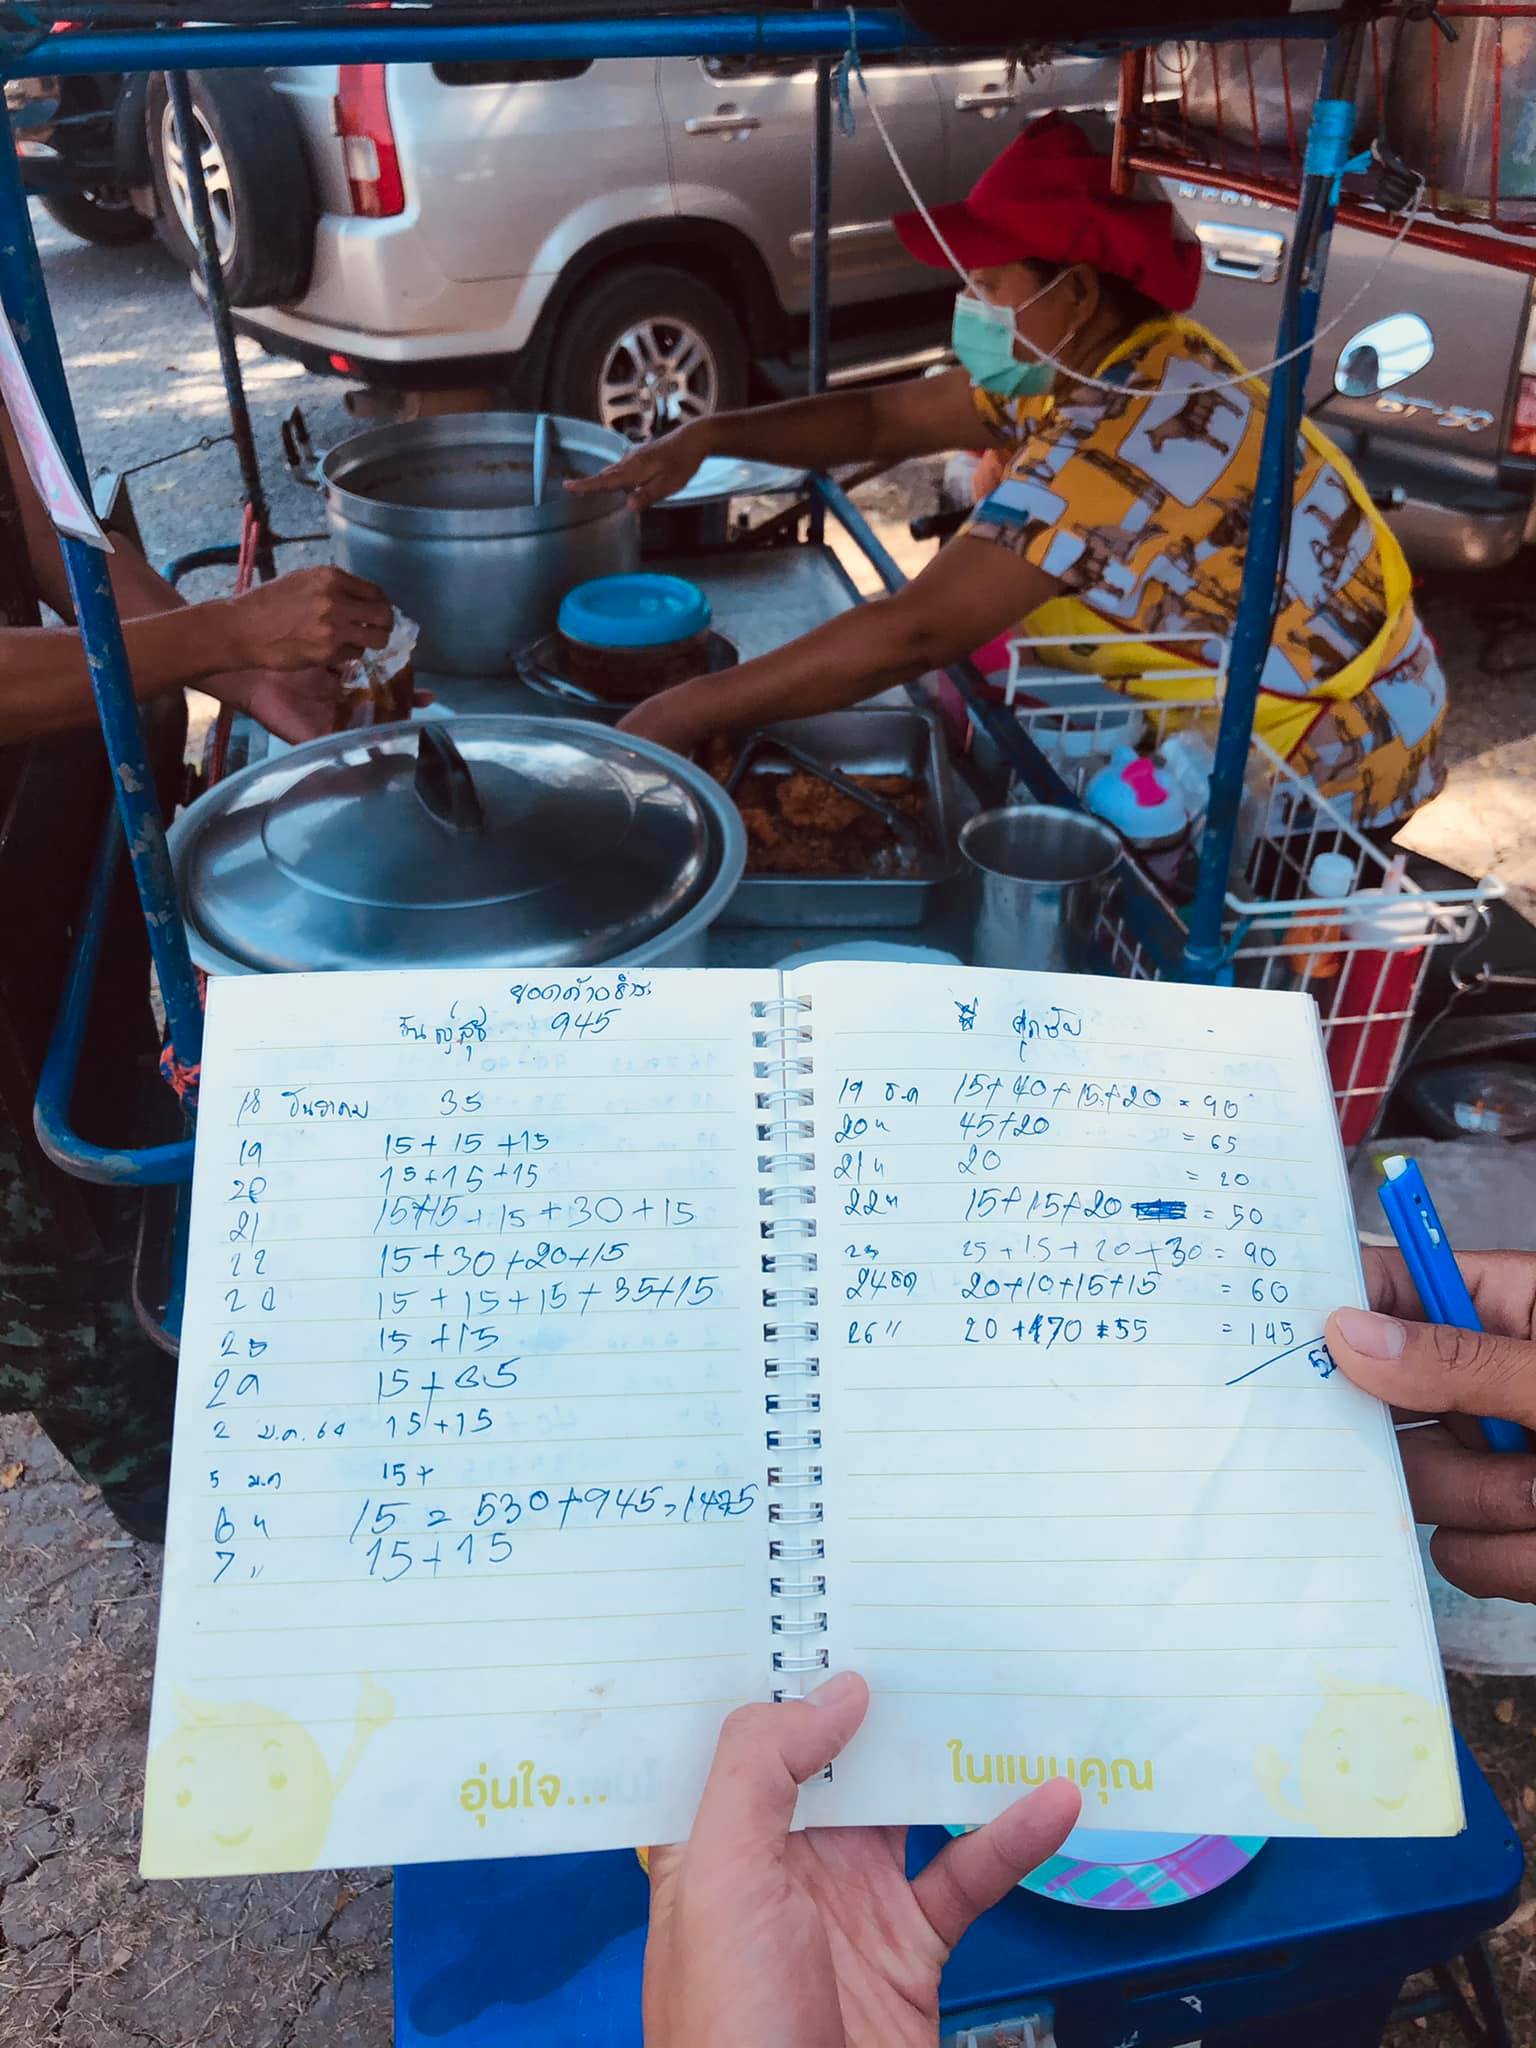 ยอดค้างชำระ
945
18 ธันวาคม 35
19 15 + 15 + 15
20 15 + 15 + 15
21 15+15 + 15 + 30 + 15
22 15 + 30 + 20 + 15
24 15 + 15 + 15 + 35 + 15
25 15 + 15
29 15 + 35
2 ม.ค. 64 15 + 15
5 ม.ค 15 +
6 " 15 = 530 + 945 = 1475
7 " 15 + 15
อุ่นใจ...
ศุภชัย
19 ธ.ค 15 + 40 + 15 + 20 = 90
20 " 45 + 20 = 65
21 " 20 = 20
22 " 15 + 15 + 20 = 50
23 25 + 15 + 20 + 30 = 90
24 ธค 20 + 10 + 15 + 15 = 60
26 " 20 + 70 + 55 = 145
ในแบบคุณ